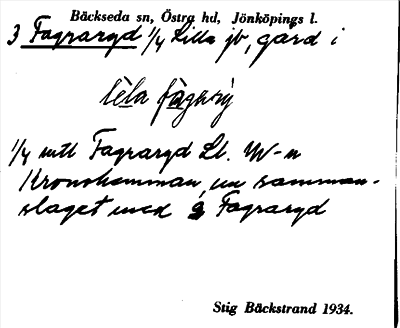 Bäckseda sn, Östra hd, Jönköpings l.
3 Fagraryd 1/4 Lilla jb, gård i
lèla fàgəry
1/4 mtl Fagraryd L:
Kronohemman, nu samman-
slaget med 2 Fagraryd
Stig Bäckstrand 1934.